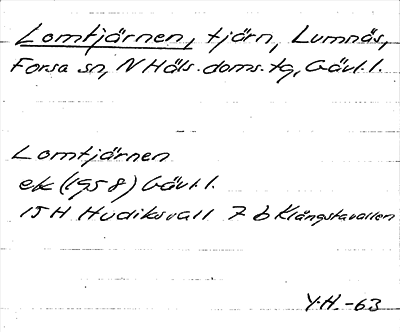 Lomtjärnen, tjärn, Lumnäs,
Forsa sn, N Häls. doms. tg, Gävl.l.
Lomtjärnen
ek (1958) Gävl.l.
15H Hudiksvall 7b Klångstavallen
Y.H. -63